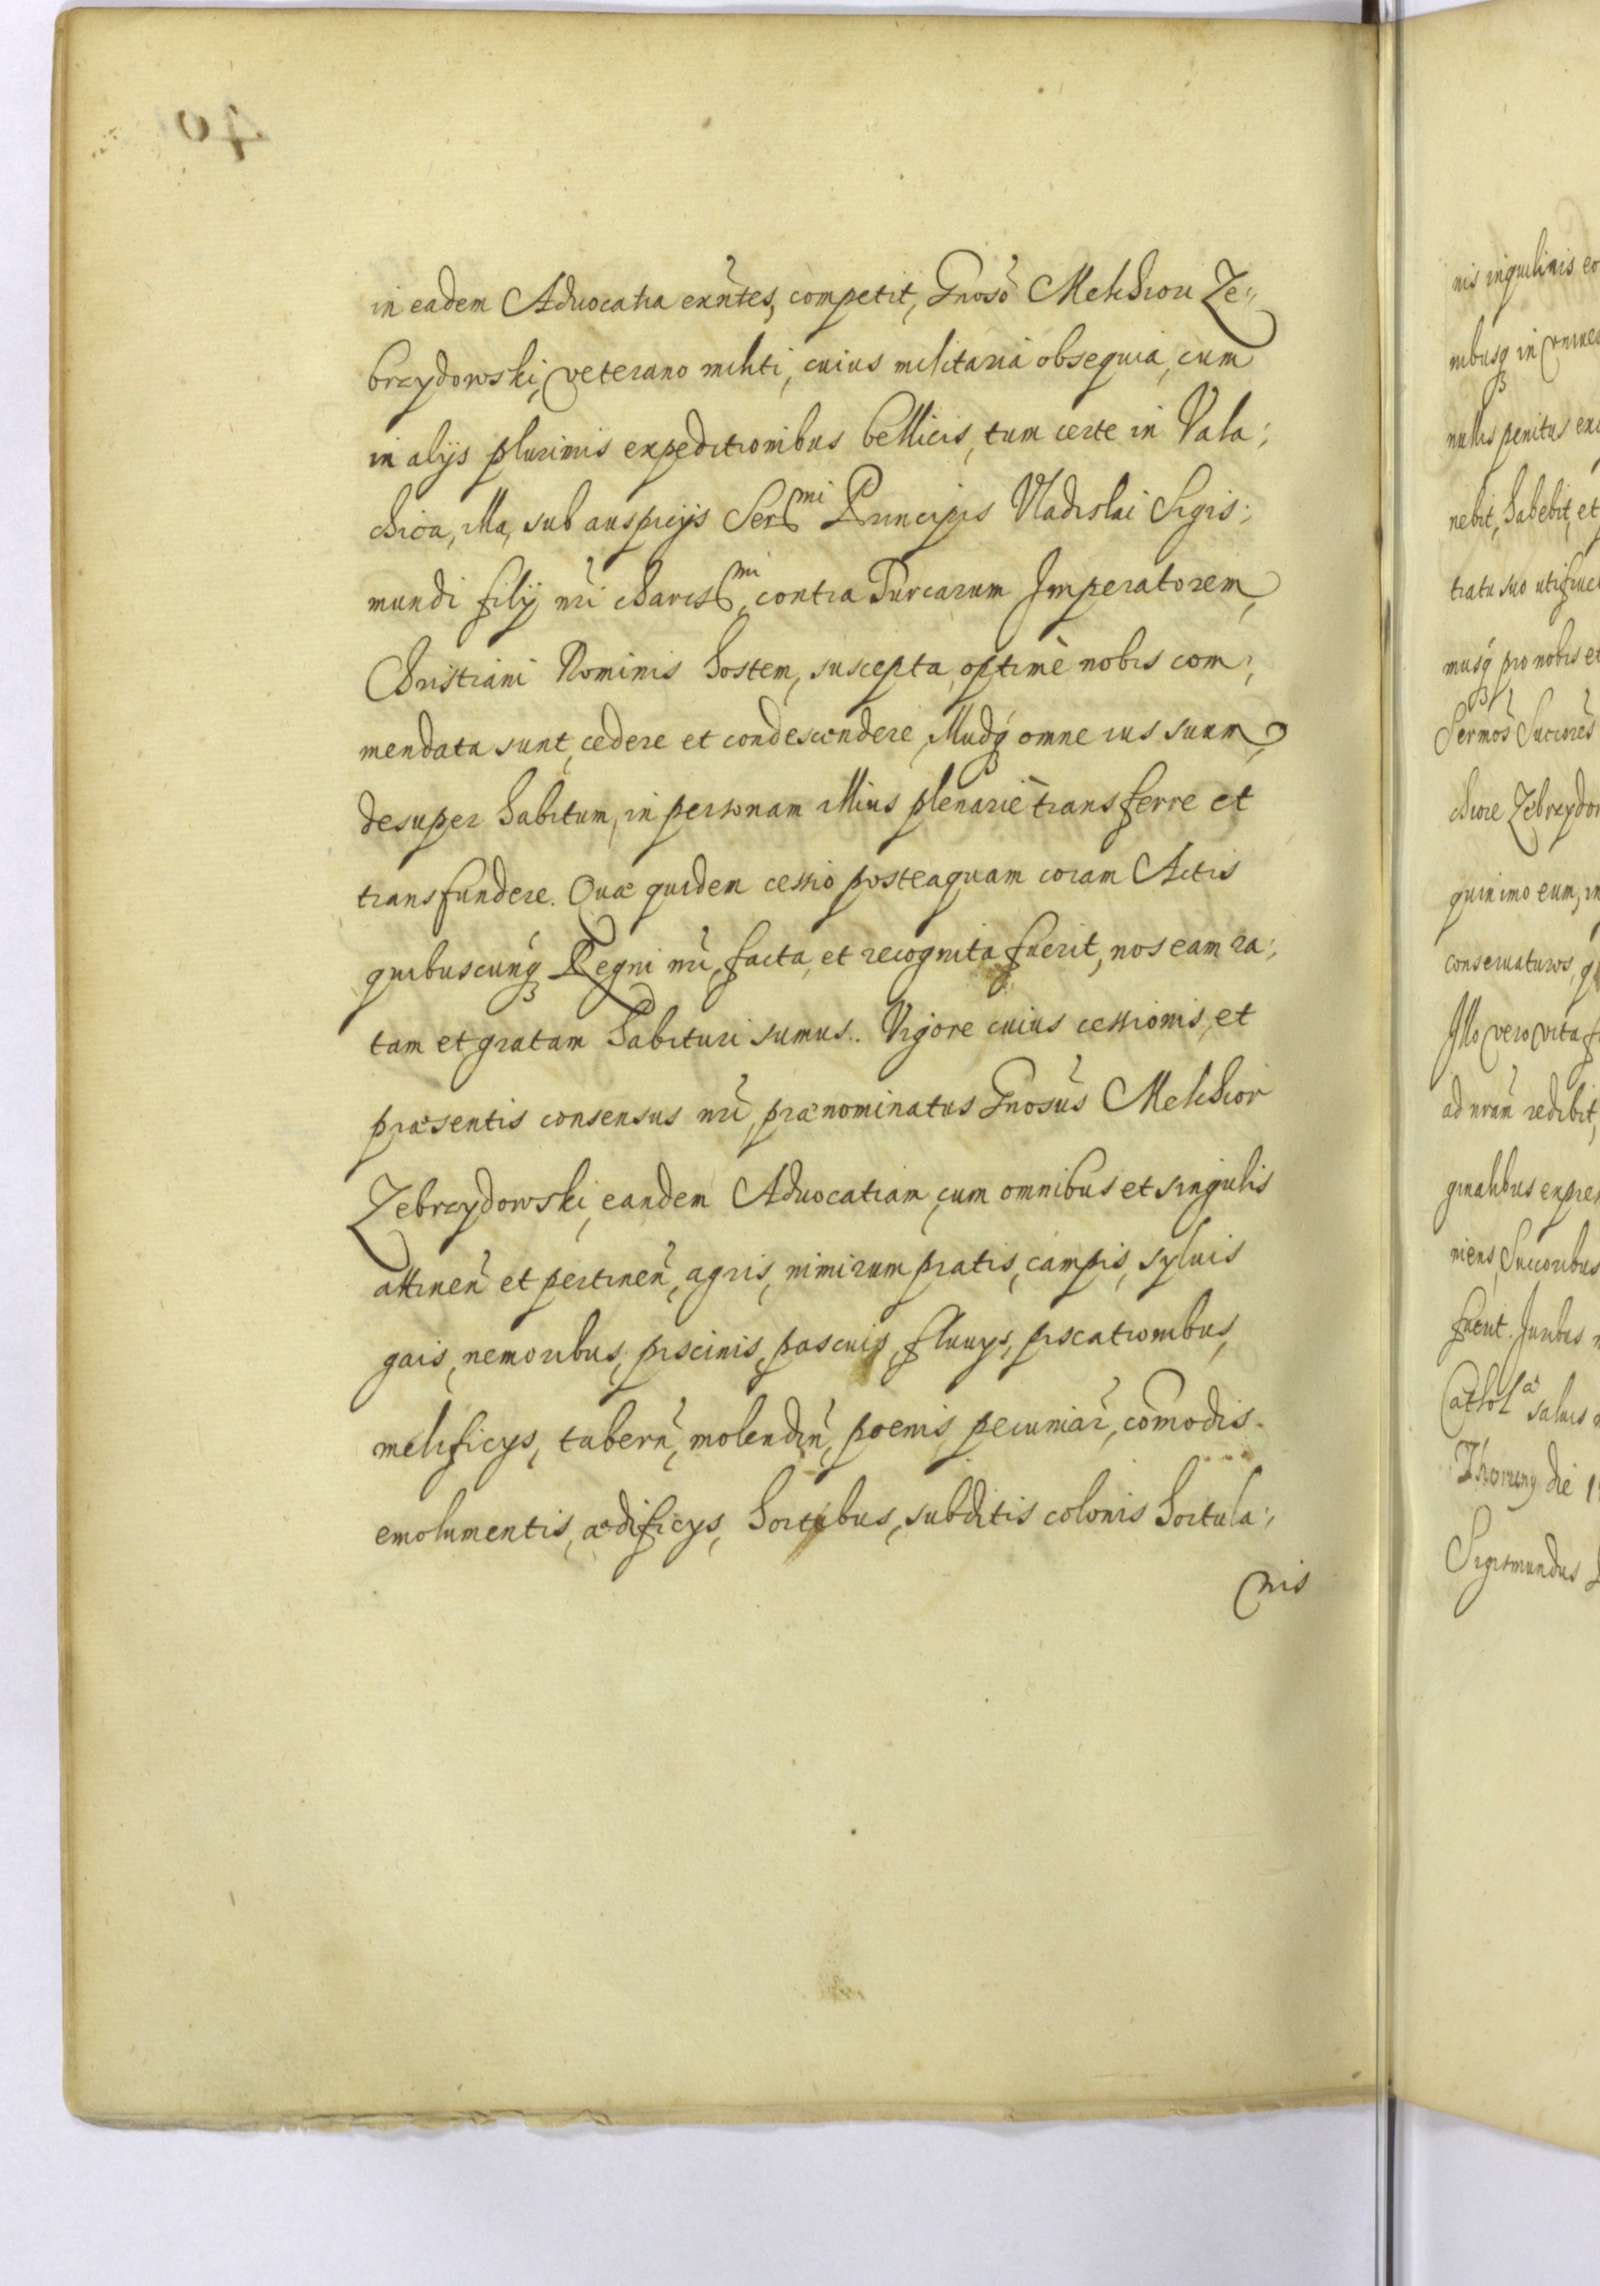 in eadem Aduocatia exñtes, competit, Gnosō Melchiori Ze-
brzydowski, veterano militi, cuius militaria obsequia, cum
in alijs plurimis expeditionibus bellicis, tum certe in Vala-
chica, illa, sub auspicijs Serᵐⁱ Principis Vladislai Sigis-
mundi filij nr̃i charissᵐⁱ, contra Turcarum Imperatorem,
Christiani Nominis hostem, suscepta, optimè nobis com-
mendata sunt, cedere et condescendere, Illudq́ omne ius suum,
desuper habitum, in personam illius plenariè transferre et
transfundere. Quæ quidem cessio posteaquam coram Actis
quibuscunq́ Regni nr̃i, facta, et recognita fuerit, nos eam ra-
tam et gratam habituri sumus. Vigore cuius cessionis, et
præsentis consensus nr̃i, prænominatus Gnosūs Melchior
Zebrzydowski, eandem Aduocatiam, cum omnibus et singulis
attineñ et pertineñ, agris, nimirum pratis, campis, syluis
gais, nemoribus, piscinis, pascuis, fluuijs, piscationibus,
melificijs, taberñ, molendiñ, poenis, pecuniar̃, com̄odis
emolumentis, ædificijs, hortibus, subditis colonis hortula-
nis
nis inquilinis eo
nibusq in vniuer
nullis penitus ex
nebit, habebit, et
tratu suo utifrue
musq́ pro nobis et
Sermos Succrēs
chiore Zebrzydo
quinimo eum, in
conseruaturos, q
Illo vero vita f
ad nram̄ redibit,
ginalibus expres
niens, Succoribus
fuerit. Juribus
Catholᵃ saluis
Thorunij die 1
Sigismundus